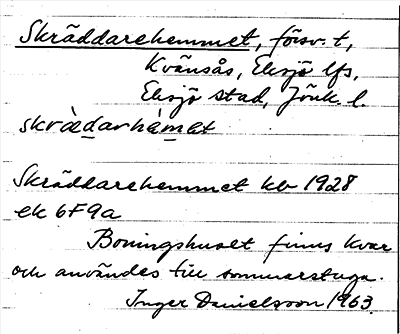 Skräddarehemmet, försv. t,
Kvänsås, Eksjö lfs,
Eksjö stad, Jönk. l.
skræ̀darhæ̀mat
Skräddarehemmet kb 1928
ek 6F9a
Boningshuset finns kvar
och användes till sommarstuga.
Inger Danielsson 1963.